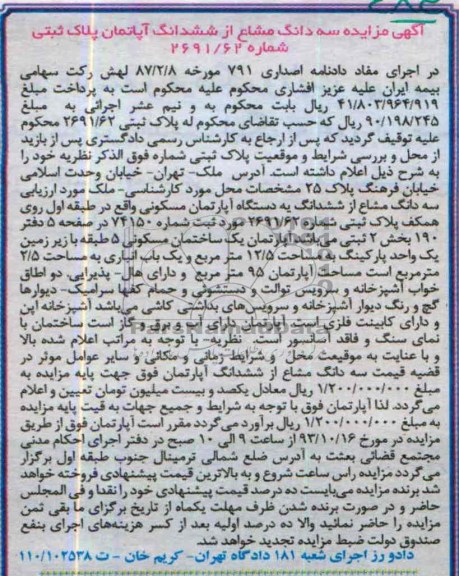 آگهی مزایده سه دانگ مشاع از ششدانگ آپاتمان پلاک ثبتی
شماره ۲۶۹۱/۶۲
در اجرای مفاد دادنامه اصداری ۷۹۱ مورخه ۸۷/۲/۸ لهش رکت سهامی
بیمه ایران علیه عزیز افشاری محکوم علیه محکوم است به پرداخت مبلغ
۴۱/۸۰۳/۹۶۴/۹۱۹ ریال بابت محکوم به و نیم عشر اجرائی به مبلغ
۹۰/۱۹۸/۲۴۵ ریال که حسب تقاضای محکوم له پلاک ثبتی ۲۶۹۱/۶۲ محکوم
علیه توقیف گردید که پس از ارجاع به کارشناس رسمی دادگستری پس از بازید
از محل و بررسی شرایط و موقعیت پلاک ثبتی شماره فوق الذکر نظریه خود را
به شرح ذیل اعلام داشته است. آدرس ملک- تهران- خیابان وحدت اسلامی
خیابان فرهنگ پلاک ۲۵ مشخصات محل مورد کارشناسی- ملک مورد ارزیابی
سه دانگ مشاع از ششدانگ یه دستگاه آپارتمان مسکونی واقع در طبقه اول روی
همکف پلاک ثبتی شماره ۲۶۹۱/۶۲ مورد ثبت شماره ۷۴۱۵۰ در صفحه ۵ دفتر
۱۹۰ بخش ۲ ثبتی می‌باشد آپارتمان یک ساختمان مسکونی ۵ طبقه با زیر زمین
یک واحد پارکینگ به مساحت ۱۲/۵ متر مربع و یک باب انباری به مساحت ۲/۵
مترمربع است مساحت آپارتمان ۹۵ متر مربع و دارای هال- پذیرایی دو اطاق
خواب آشپزخانه و سرویس توالت و دستشوئی و حمام کفها سرامیک- دیوارها
گچ و رنگ دیوار آشپزخانه و سرویس‌های بداشتی کاشی می‌باشد آشپزخانه اپن
و دارای کابینت فلزی است آپارتمان دارای آب و برق و گاز است ساختمان با
نمای سنگ و فاقد آسانسور است. نظریه- با توجه به مراتب اعلام شده بالا
و با عنایت به موقعیت محل و شرایط زمانی و مکانی و سایر عوامل موثر در
قضیه قیمت سه دانگ مشاع از ششدانگ آپارتمان فوق جهت پایه مزایده به
مبلغ ۱/۲۰۰/۰۰۰/۰۰۰ ریال معادل یکصد و بیست میلیون تومان تعیین و اعلام
می‌گردد. لذا آپارتمان فوق با توجه به شرایط و جمیع جهات به قیت پایه مزایده
به مبلغ ۱/۲۰۰/۰۰۰/۰۰۰ ریال برآورد می‌گردد مقرر است آپارتمان فوق از طریق
مزایده در مورخ ۹۳/۱۰/۱۶ از ساعت ۹ الی ۱۰ صبح در دفتر اجرای احکام مدنی
مجتمع قضائی بعثت به آدرس ضلع شمالی ترمینال جنوب طبقه اول برگزار
می‌گردد مزایده راس ساعت شروع و به بالاترین قیمت پیشنهادی فروخته خواهد
شد برنده مزایده می‌بایست ده درصد قیمت پیشنهادی خود را نقدا و فی المجلس
حاضر و در صورت برنده شدن ظرف مهلت یکماه از تاریخ برگزای ما بقی ثمن
مزایده را حاضر نمائید والا ده درصد اولیه بعد از کسر هزینه‌های اجرای بنفع
صندوق دولت ضبط مزایده تجدید خواهد شد.
دادو رز اجرای شعبه ۱۸۱ دادگاه تهران- کریم خان - ت ۱۱۰/۱۰۲۵۳۸